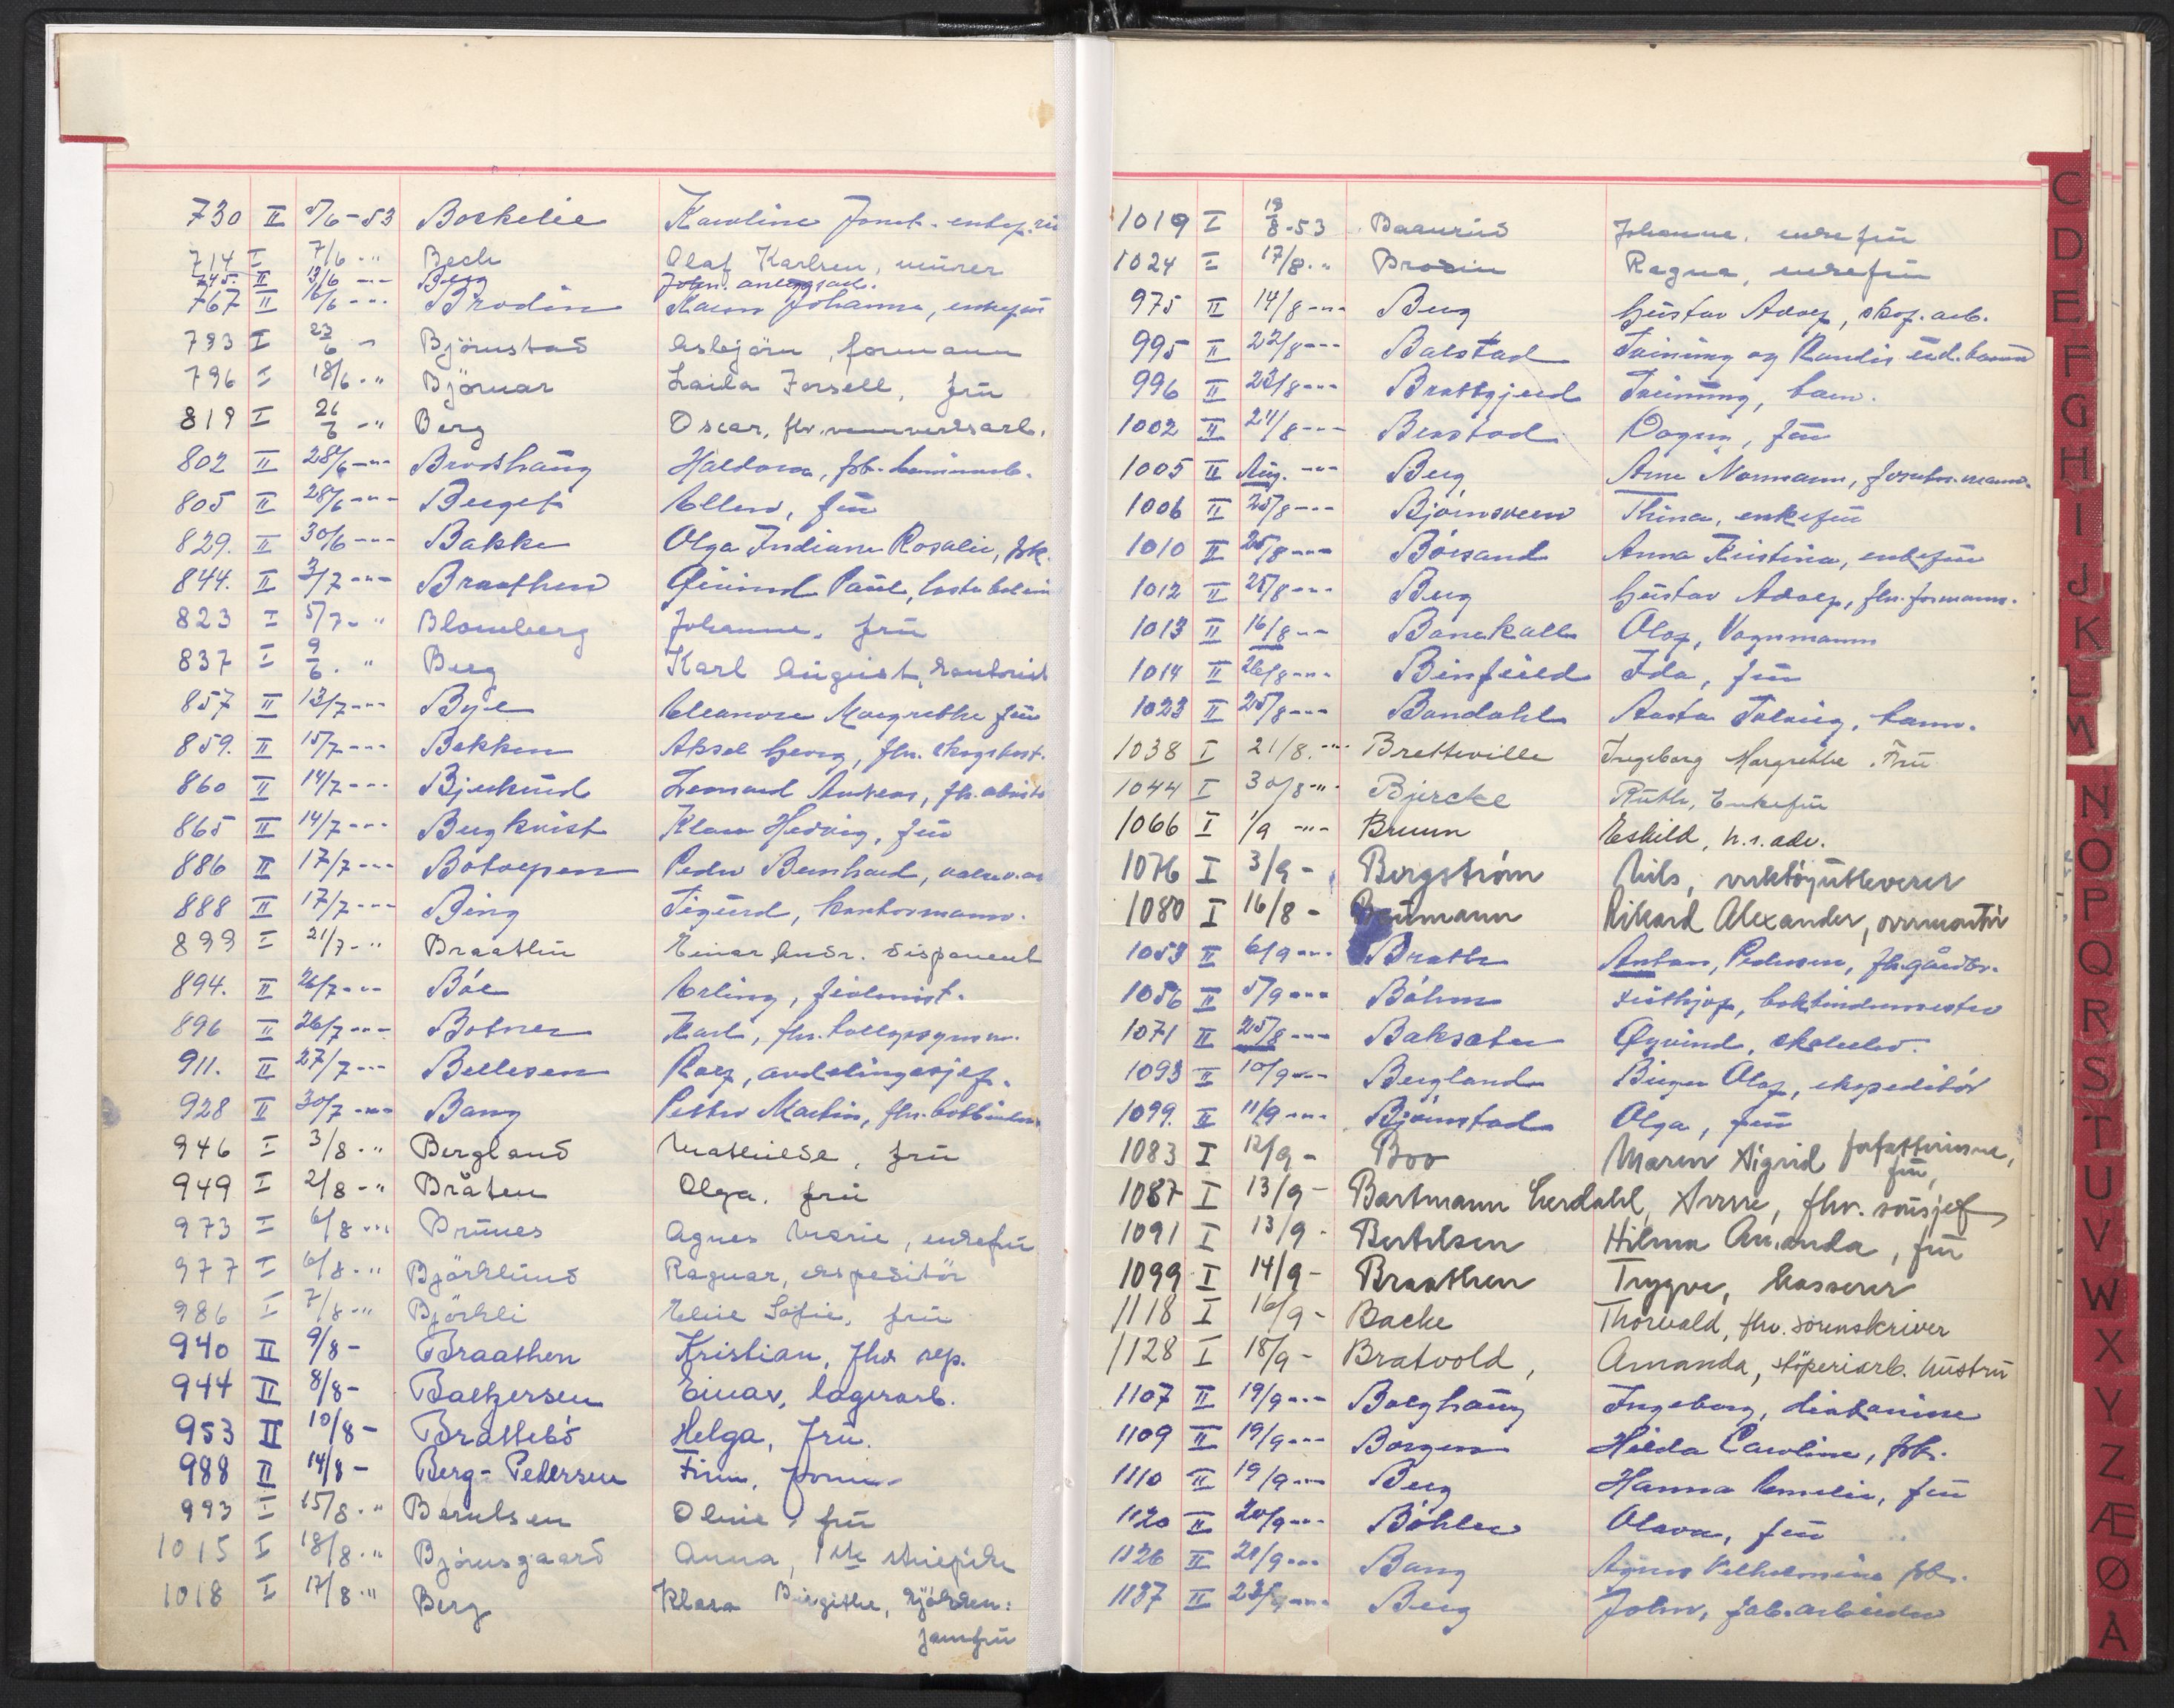 730 II 5/6-53 Boskelie Karoline Jons-
714 I 7/6 -"- Bech Olaf Karlsen, murer
745. II 13/6 -"- Berg John, anleggsarb.
767 II 16/6 -"- Brodin Karen Johanne, enkefru
793 I 23/6 " Björnstad Asbjörn, formann
796 I 18/6 -" Björnar Laila Forsell, frü
819 I 26/6 -" Berg Oscar, fhv.
802 II 28/6 -"- Brodshaug Haldora, frk.
805 II 28/6 -"- Berget Ellen, frü
829. II 30/6 -"- Bakke Olga Indiane Rosalie, frk.
844. II 3/7 -"- Braathen Øivind Paul,
823 I 5/7 - " Blomberg Johanne, frü
837 I 9/6. " Berg Karl August,
857 II 13/7 -"- Bye Eleanore Margrethe frü
859. II 15/7 -"- Bekken Aksel Georg, fhv.
860 II 14/7 -"- Bjerknes Leonard Andreas, fhv.
865 II 14/7 -"- Bergkvist Klara Hedvig, frü
886 II 17/7 -"- Botolfsen Peder Bernhard,
888 II 17/7 -"- Bing Sigurd, kontormann.
899 I 21/7 -" Braathen Einar Andr. disponent
894. II 26/7 -"- Böe Erling, fiolinist.
896 II 26/7 -"- Botner Karl, fhv. tollopsynsm.
911. II 27/7 -"- Bellesen Rolf, avdelingssjef.
928 II 30/7 -"- Bang Petter Martin, fhv.
946 I 3/8 -" Bergland Mathilde, frü
949 I 2/8 -" Bråten Olga, frü
973 I 6/8 -"- Brünes Agnes Marie, enkefrü
977 I 6/8 -" Björklund Ragnar, ekspeditör
986 I 7/8 -" Björkli Eline Sofie, frü
940 II 9/8 - Braathen Kristian, fhv rep.
944 II 8/8 - Baltzersen Einar, lagerarb.
953 II 10/8 - Brattebö Helga, Frü.
988 II 14/8 - Berg-Pedersen Finn,
993 I 15/8 -" Berntsen Oline, frü
1015 I 18/8 -" Björnsgaard Anna, 1ste
1018 I 17/8 -" Berg Klara Birgitte,
jomfrü
1019 I 19/8-53 Baanrud Johanne, enkefrü
1024 I 17/8 -" Brodin Ragna, enkefrü
975 II 14/8 -"- Berg Gustav Adolf, skof. arb.
995 II 22/8 -"- Balstad Tvining og Randis ud. barn
996 II 23/8 -"- Brattgjerd Tvining, barn.
1002 II 24/8 -"- Berstad Dagny, frü
1005 II Aug. -"- Berg Arne Normann,
1006 II 25/8 -"- Björnsveen Thina, enkefrü
1010 II 25/8 -"- Börsand Anna Kristine, enkefrü
1012 II 25/8 -"- Berg Gustav Adolf, fhv. formann.
1013 II 16/8 -"- Banekall Olaf, Vognmann
1014 II 26/8 -"- Binfield Ida, frü
1023 II 25/8 -"- Bondahl Aasta Solveig, barn.
1038 I 21/8 -"- Bretteville Ingeborg Margrethe. Frü
1044 I 30/8 -"- Bjercke Ruth, Enkefrü
1066 I 1/9 -"- Bruun Eskild, h.r.adv.
1076 I 3/9 - Bergström Nils, verktöyutleverer
1080 I 16/8 - Baumann Rikard Alexander, ovnmontör
1053 II 6/9 -"- Brath Anton, Pedersen, fhv. gårdbr.
1056 II 5/9 -"- Böhm Fridtjof, bokbindermester
1071 II 25/8 -"- Baksæter Øyvind, skoleelev.
1093 II 10/9 -"- Bergland Birger Olaf, ekspeditör
1099. II 11/9 -"- Björnstad Olga, frü
1083 I 12/9 - Boo Maren Sigrid forfatterinne,
frü,
1087 I 13/9 - Bartmann Lerdahl, Arne, fhv. sousjef
1091 I 13/9 - Bertelsen Hilma Amanda, frü
1099 I 14/9 - Braathen Trygve, kasserer
1118 I 16/9 - Backe Thorvald, fhv. sorenskriver
1128 I 18/9 - Bratvold, Amanda, stöperiarb. hustru
1107 II 19/9 -"- Borghaug Ingeborg, diakonisse
1109 II 19/9 -"- Borgen Hilda Caroline, frk.
1110 II 19/9 -"- Berg Hanna Emelie, frü
1120 II 20/9 -"- Böhler Olava, frü
1126 II 21/9 -"- Bang Agnes Vilhelmine frk.
1137 II 23/9 -"- Berg John, fab. arbeider
C
D
E
F
G
H
I
J
K
L
M
N
O
P
Q
R
S
T
U
V
W
X
Y
Z
Æ
Ø
Å